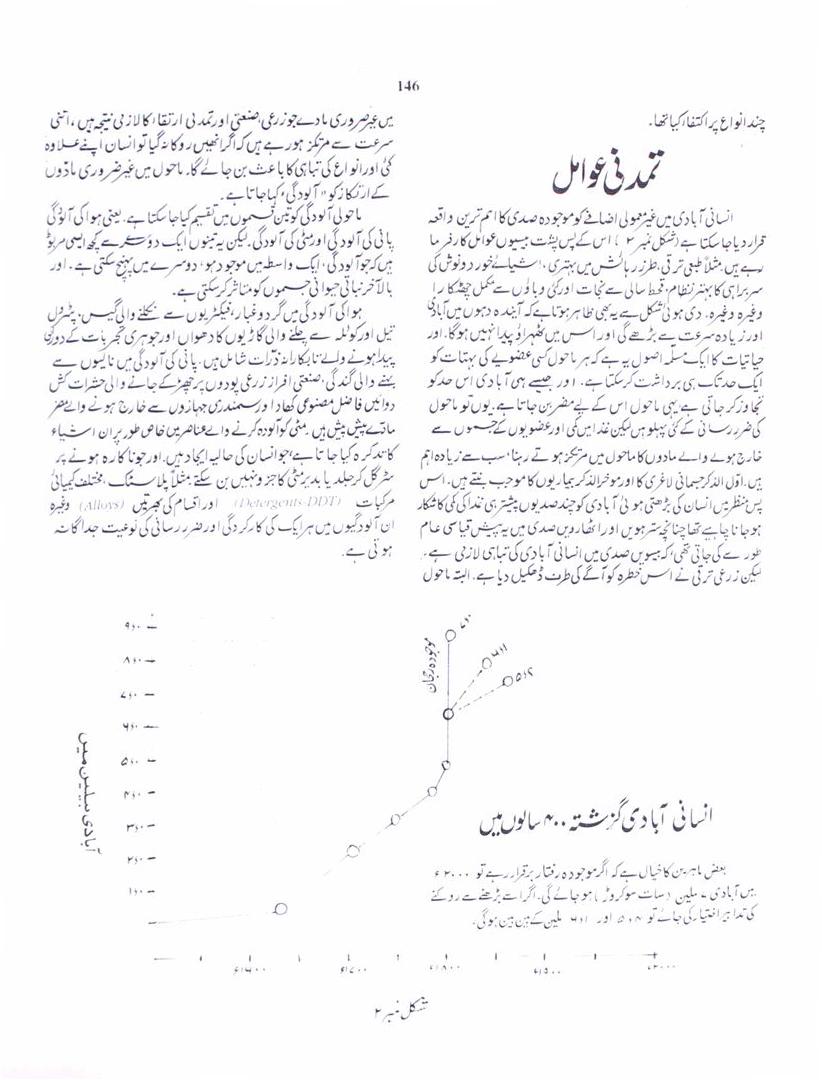 146
چند انواع پر اکتفا کیا تھا۔
تمدنی عوامل
انسانی آبادی میں غیر معمولی اضافے کو موجودہ صدی کا اہم ترین واقعہ
قرار دیا جا سکتا ہے (شکل نمبر ۲) اس کے پس پشت بیسیوں عوامل کارفرما
رہے ہیں۔ مثلاً طبی ترقی، طرز رہائش میں بہتری، اشیائے خورد و نوش کی
سربراہی کا بہتر نظام، قحط سالی سے نجات اور کئی وباؤں سے مکمل چھٹکارا
وغیرہ وغیرہ۔ دی ہوئی شکل سے یہ بھی ظاہر ہوتا ہے کہ آیندہ دہوں میں آبادی
اور زیادہ سرعت سے بڑھے گی اور اس میں ٹھہراؤ پیدا نہیں ہوگا۔ اور
حیاتیات کا ایک مسلمہ اصول یہ ہے کہ ہر ماحول کسی عضویے کی بہتات کو
ایک حد تک ہی برداشت کر سکتا ہے۔ اور جیسے ہی آبادی اس حد کو
تجاوز کر جاتی ہے یہی ماحول اس کے لیے مضر بن جاتا ہے۔ یوں تو ماحول
کی ضرر رسانی کے کئی پہلو ہیں لیکن غذا میں کمی اور عضویوں کے جسموں سے
خارج ہونے والے مادوں کا ماحول میں مرتکز ہوتے رہنا، سب سے زیادہ اہم
ہیں۔ اول الذکر جسمانی لاغری کا اور موخر الذکر بیماریوں کا موجب بنتے ہیں۔ اس
پس منظر میں انسان کی بڑھتی ہوئی آبادی کو چند صدیوں پیشتر ہی غذا کی کمی کا شکار
ہو جانا چاہیے تھا چنانچہ سترہویں اور اٹھارویں صدی میں یہ پیش قیاسی عام
طور سے کی جاتی تھی کہ بیسویں صدی میں انسانی آبادی کی تباہی لازمی ہے۔
لیکن زرعی ترقی نے اس خطرہ کو آگے کی طرف ڈھکیل دیا ہے۔ البتہ ماحول
میں غیر ضروری مادے جو زرعی، صنعتی اور تمدنی ارتقا کا لازمی نتیجہ ہیں، اتنی
سرعت سے مرتکز ہو رہے ہیں کہ اگر انھیں روکا نہ گیا تو انسان اپنے علاوہ
کئی اور انواع کی تباہی کا باعث بن جائے گا۔ ماحول میں غیر ضروری مادّوں
کے ارتکاز کو "آلودگی" کہا جاتا ہے۔
ماحولی آلودگی کو تین قسموں میں تقسیم کیا جا سکتا ہے۔ یعنی ہوا کی آلودگی
پانی کی آلودگی اور مٹی کی آلودگی۔ لیکن یہ تینوں ایک دوسرے سے کچھ ایسی مربوط
ہیں کہ جو آلودگی، ایک واسطہ میں موجود ہو، دوسرے میں پہنچ سکتی ہے۔ اور
بالآخر نباتی حیوانی جسموں کو متاثر کر سکتی ہے۔
ہوا کی آلودگی میں گرد و غبار، فیکٹریوں سے نکلنے والی گیس، پٹرول
تیل اور کوئلہ سے چلنے والی گاڑیوں کا دھواں اور جوہری تجربات کے دوران
پیدا ہونے والے تابکارانہ ذرّات شامل ہیں۔ پانی کی آلودگی میں نالیوں سے
بہنے والی گندگی، صنعتی افراز زرعی پودوں پر چھڑکے جانے والی حشرات کش
دوائیں فاضل مصنوعی کھاد اور سمندری جہازوں سے خارج ہونے والے مضر
مادّے پیش پیش ہیں۔ مٹی کو آلودہ کرنے والے عناصر میں خاص طور پر ان اشیاء
کا تذکرہ کیا جاتا ہے، جو انسان کی حالیہ ایجاد ہیں۔ اور جو ناکارہ ہونے پر
سڑ گل کر جلد یا بدیر مٹی کا جز و نہیں بن سکتے مثلاً پلاسٹک، مختلف کیمیائی
مرکبات (Detergents-DDT) اور اقسام کی بھرتیں (Alloys) وغیرہ
ان آلودگیوں میں ہر ایک کی کارکردگی اور ضرر رسانی کی نوعیت جداگانہ
ہوتی ہے۔
۹ء۰
۸ء۰
۷ء۰
۶ء۰
۵ء۰
۴ء۰
۳ء۰
۲ء۰
۱ء۰
آبادی بیلین میں
۷ء۰
۶ء۱
۵ء۲
انسانی آبادی گزشتہ ۴۰۰ سالوں میں
بعض ماہرین کا خیال ہے کہ اگر موجودہ رفتار برقرار رہے تو ۲۰۰۰ء
میں آبادی ۷ بلین (سات سو کروڑ) ہو جائے گی۔ اگر اسے بڑھنے سے روکنے
کی تدابیر اختیار کی جائے تو ۵ء۲ اور ۶ء۱ بلین کے بین بین ہوگی۔
۱۶۰۰ء
۱۷۰۰ء
۱۸۰۰ء
۱۹۰۰ء
۲۰۰۰ء
شکل نمبر ۲